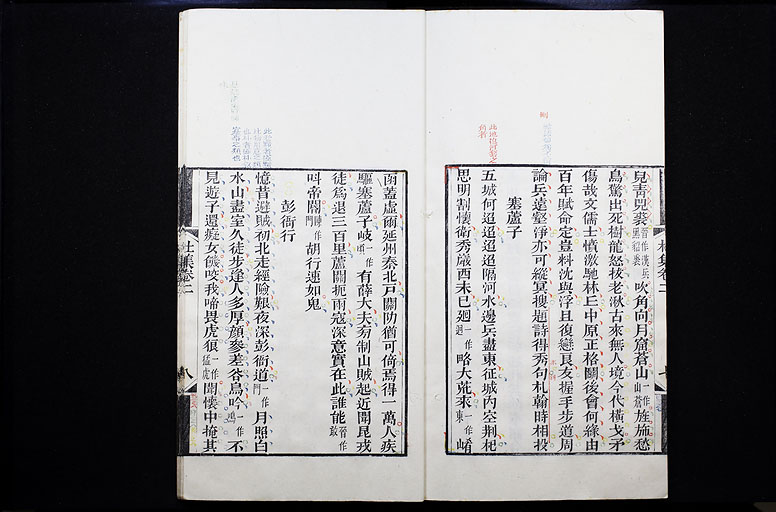 兒靑兕裘晉作漢兵黑貂裘吹角向月窟蒼山一作山蒼旌施愁
鳥驚出死樹龍怒拔老湫古來無人境今代橫戈矛
傷哉文儒士憤激馳林丘中原正格鬭後會何緣由
百年賦命定豈料沈與浮且復戀良友握手步道周
論兵遠壑淨亦可縱冥搜題詩得秀句札翰時相投
塞蘆子
五城何迢迢迢迢隔河水邊兵盡東征城內空荆杞
思明割懷衞秀巖西未已廻一作迴略大荒來一作東崤
函蓋虛爾延州秦北戶關防猶可倚焉得一萬人疾
驅塞蘆子岐一作頃有薛大夫旁制山賊起近聞昆戎
徒爲退三百里蘆關扼兩寇深意實在此誰能晉作敢
叫帝閽一作門胡行速如鬼
彭衙行
憶昔避賊初北走經險艱夜深彭衙道一作門月照白
水山盡室久徒步逢人多厚顏參差谷鳥吟一作鳴不
見遊子還癡女饑咬我啼畏虎狼一作猛虎聞懷中掩其
杜集卷二
八